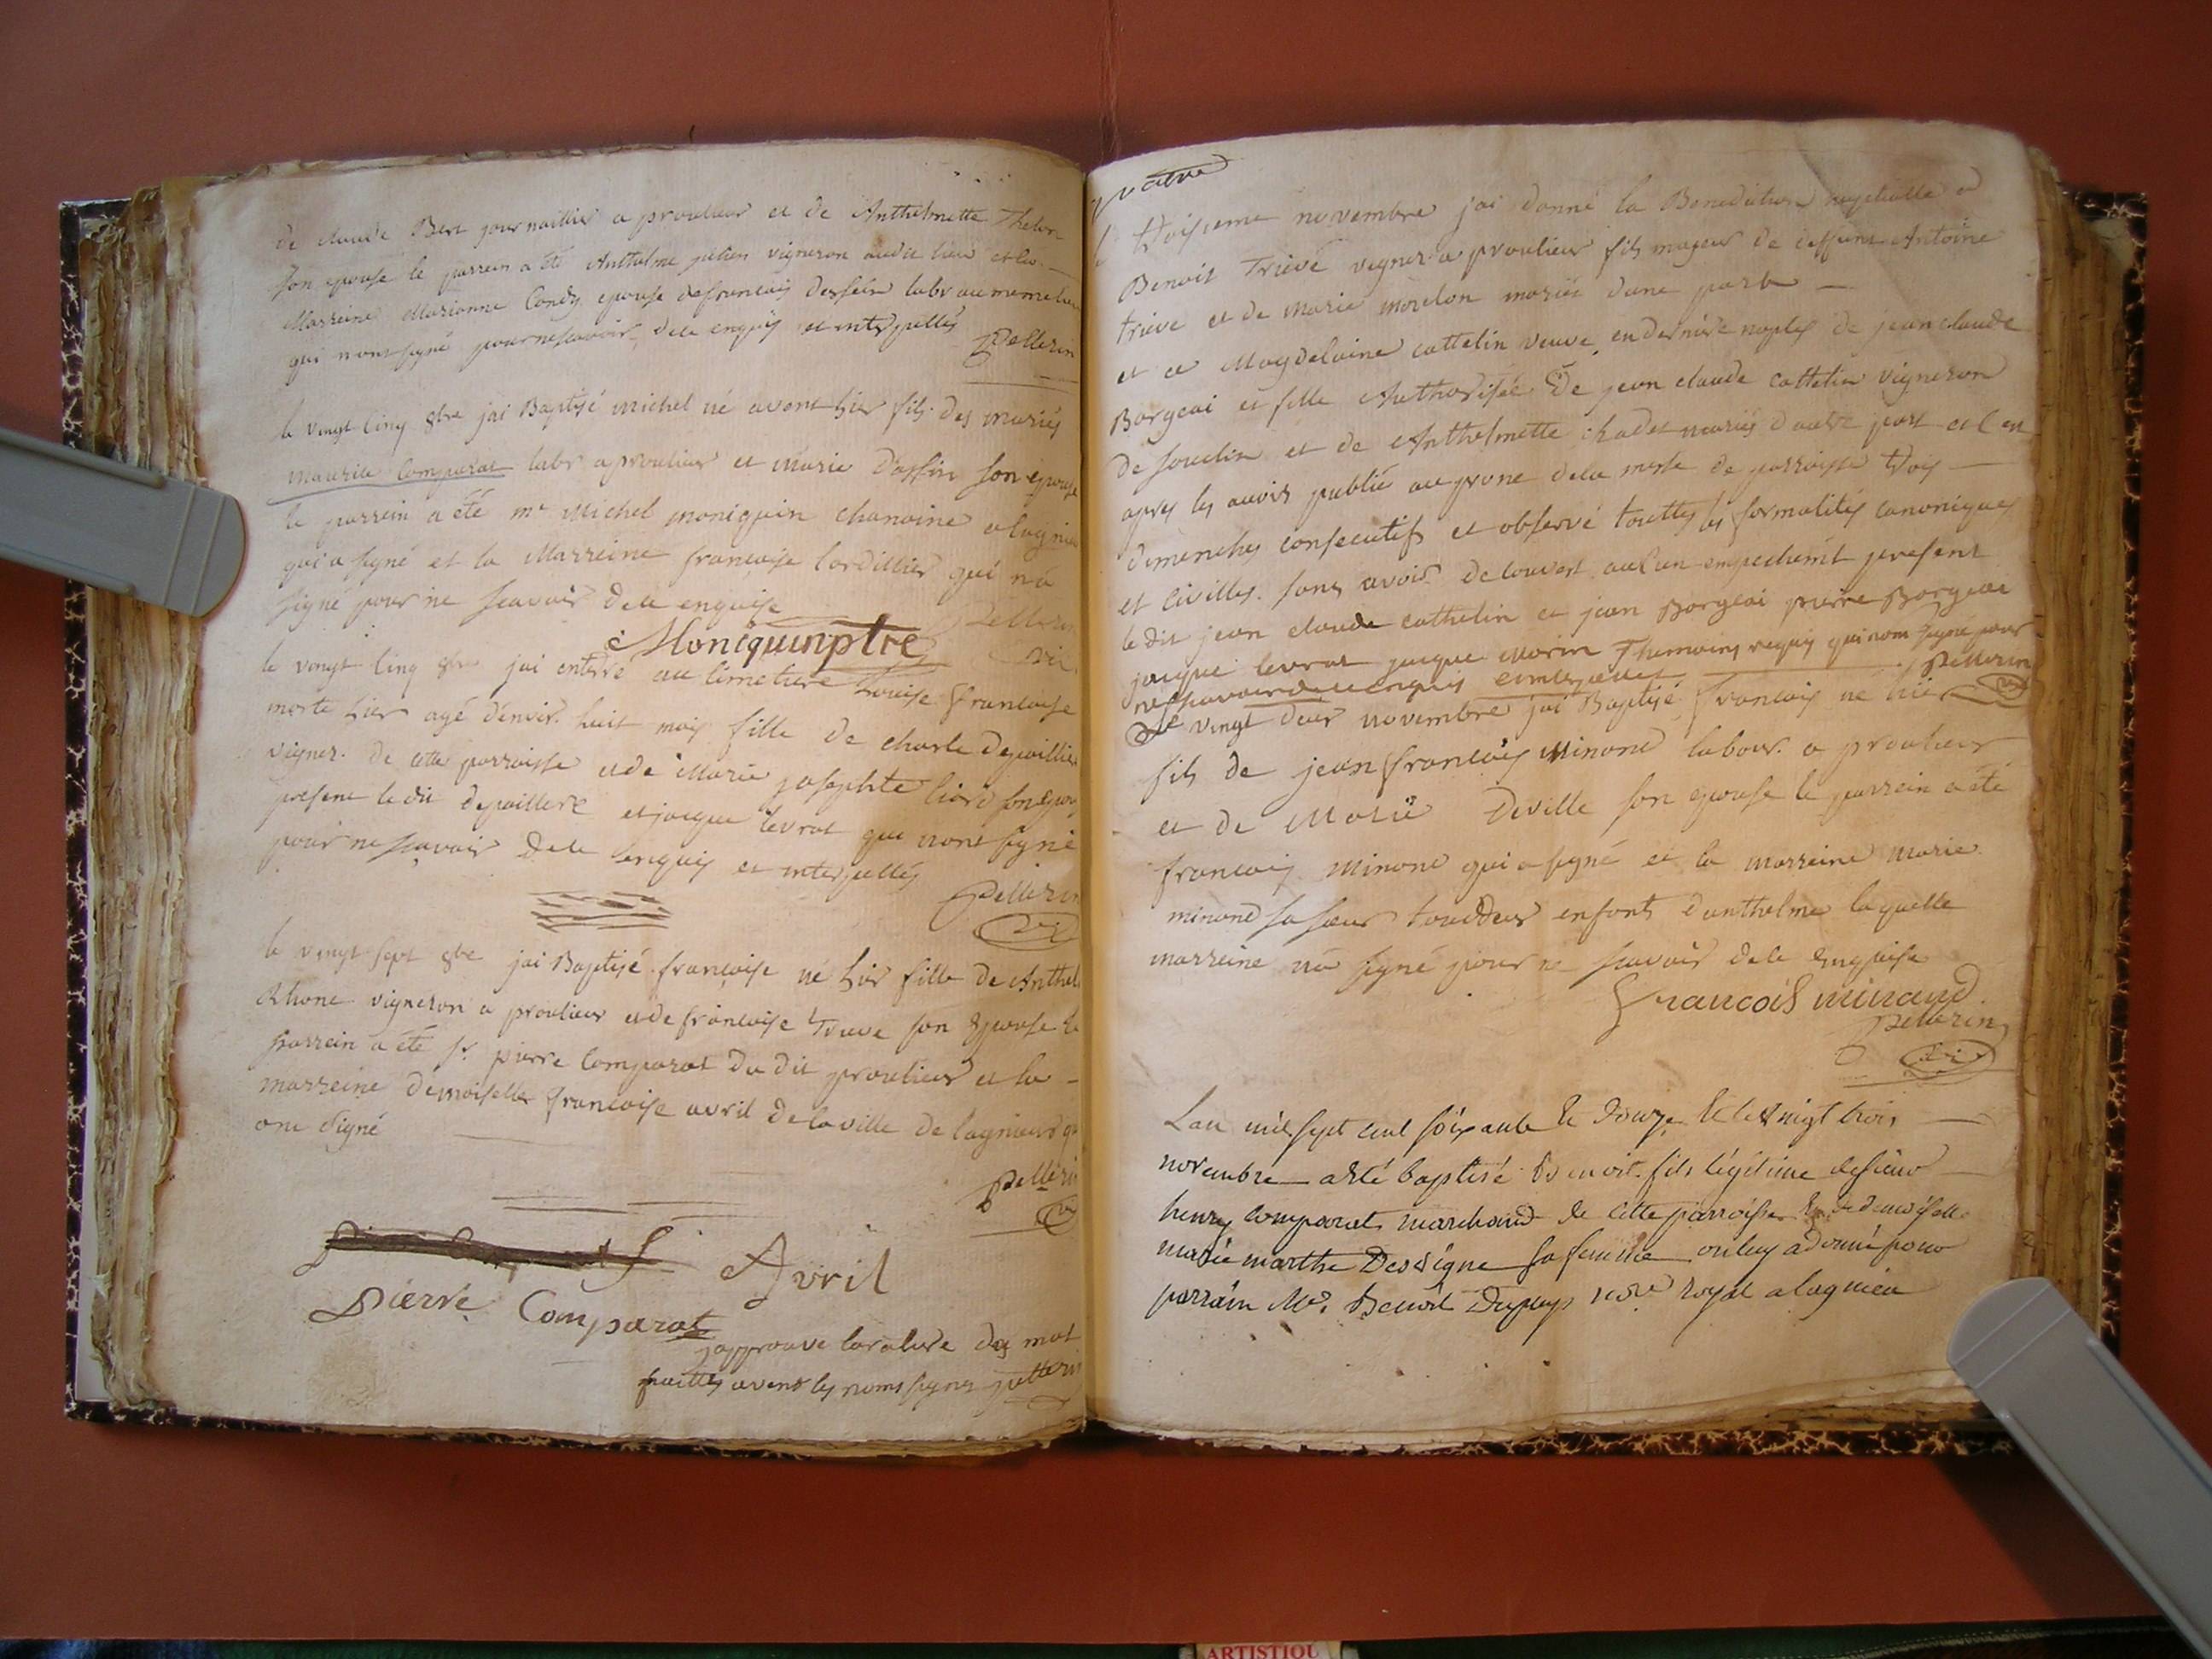 de claude Bert journaillier a proulieu et de Anthelmette
son epouse le parrein a été Anthelme julien vigneron audit lieu et la
Marreine Marianne Condy epouse de francois dessein labr au meme lieu
qui nont signé pour ne scavoir de ce enquis et interpellés
Pellerin
le vingt cinq 8bre jai Baptisé michel né avant hier fils des mariés
maurice Comparat labr a proulieu et Marie Dassin son epouse
le parrein a été mr Michel moniquin chanoine a lagnieu
qui a signé et la Marreine francoise Cordillier qui n'a
signé pour ne scavoir de ce enquise
Pellerin
Moniquin ptre
vic
le vingt cinq 8bre jai enterré au cimetiere Louise francoise
morte hier agé denvir. huit mois fille de charle depaillier
vigner. de cette parroisse et de Marie josephte liard son epou
present le dit depaillere et jacque levrat qui nont signé
pour ne scavoir de ce enquis et interpellés
Pellerin
vic
le vingt sept 8bre jai Baptisé francoise né hier fille de Anthel
Rhone vigneron a proulieu et de francoise Trieve son Epouse le
parrein a été sr pierre Comparat du dit proulieu et la
marreine demoiselle francoise avril de la ville de lagnieu q
ont signé
Pellerin
vic
Avril
Pierre Comparat
japprouve la rature des mot
faittes avent les noms signes pellerin
vic
troisieme novembre jai donné la Benediction nuptialle a
Benoit Trieve vigner. a proulieu fils majeur de deffunt Antoine
trieve et de Marie morelon mariés dune part
et a Magdelaine cattelin veuve en derniere noples de jean claude
Borgeai et fille Authorisée De jean claude cattelin vigneron
de souclin et de Anthelmette chadet mariés d'autre part et l en
apres les avoir publié au prone de la messe de parroisse trois
dimenches consecutifs et observé touttes les formalités canoniques
et civilles. sans avoir decouvert aucun empechemt present
le dit jean claude cathelin et jean Borgeai pierre Borgeai
jacque levrat jacque Morin Themoins requis qui nont signé pour
ne scavoir de ce enquis et interpellés
Pellerin
vic
Le vingt deux novembre jai Baptisé francois ne hier
fils de jean francois Minand labour. a proulieu
et de Marie Deville son epouse le parrein a été
francois Minand qui a signé et la marreine marie
minand sa sœur touddeux enfants d'anthelme laquelle
marreine na signé pour ne scavoir de ce enquise
francois minand
Pellerin
vic
Lan mil sept cent soixante et douze et le vingt trois
novembre a eté baptisé benoit fils légitime de sieur
henry comparat marchand de cette parroisse et de demoiselle
marie marthe Dessigne sa femme on luy a donné pour
parrain Mr. Benoit Dupuys nore royal a lagnieu
ARTISTIQU